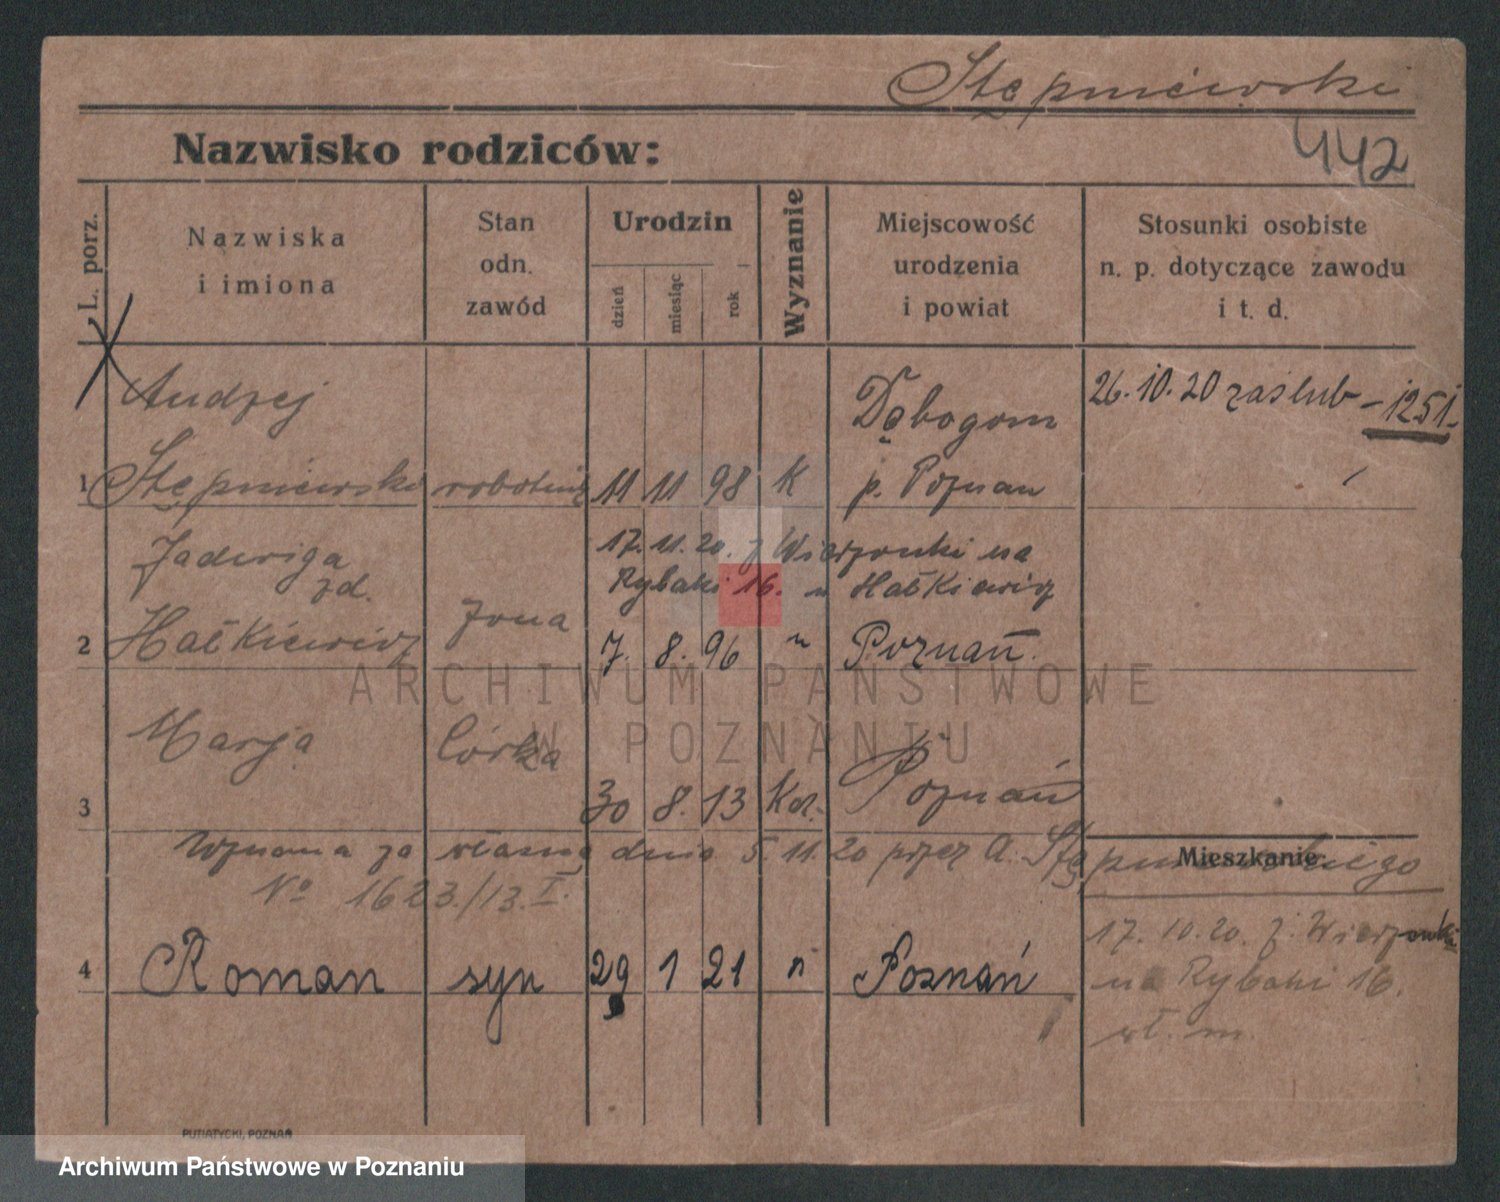 Stępniewski
Nazwisko rodziców:
442
L. porz.
Nazwiska
i imiona
Stan
odn.
zawód
Urodzin
dzień
miesiąc
rok
Wyznanie
Miejscowość
urodzenia
i powiat
Stosunki osobiste
n. p. dotyczące zawodu
i t. d.
Andrzej
Dębogom
26.10.20 zaślub - 1251.
1 Stępniewski robotnik 11 11 98 K p. Poznan
Jadwiga
zd.
17.11.20. z Wierzonki na
Rybaki 16. u Hałkiewicz
2 Hałkiewicz żona 7. 8. 96 " Poznań.
Marja córka
3 30 8. 13 Kat. Poznań
Uznana za własną dnia 5.11.20 przez A. Stępniewskiego
No 1623/13.I.
Mieszkanie
17.10.20. z Wierzonki
na Rybaki 16.
wł. m.
4 Roman syn 29 1 21 " Poznań
PUTIATYCKI, POZNAŃ
ARCHIWUM PAŃSTWOWE
W POZNANIU
Archiwum Państwowe w Poznaniu